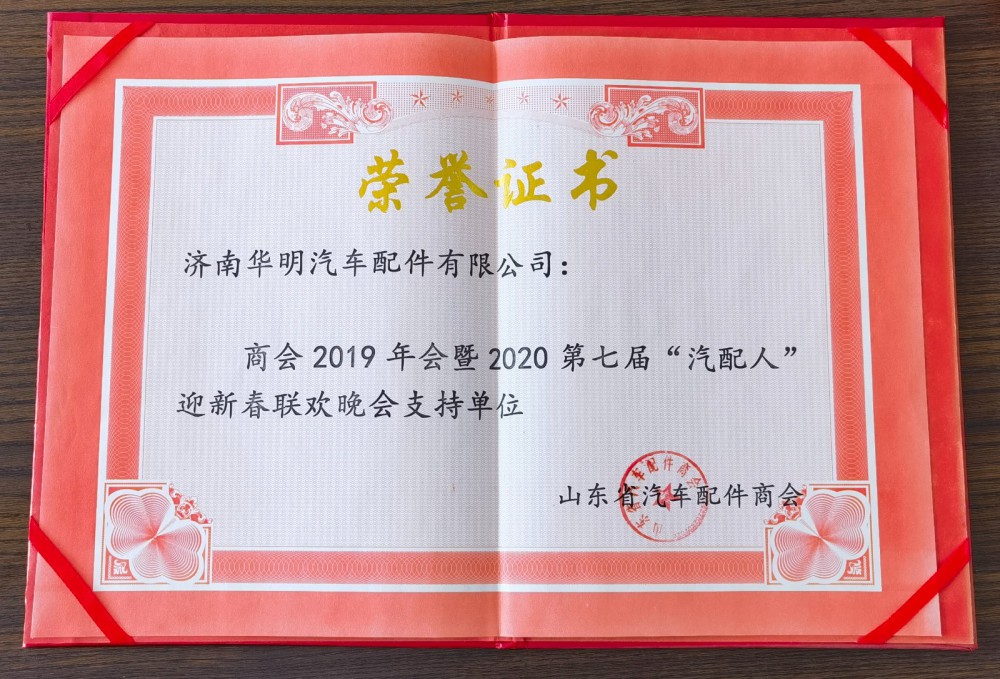 荣誉证书
济南华明汽车配件有限公司：
商会2019年会暨2020第七届“汽配人”
迎新春联欢晚会支持单位
山东省汽车配件商会
山东省汽车配件商会